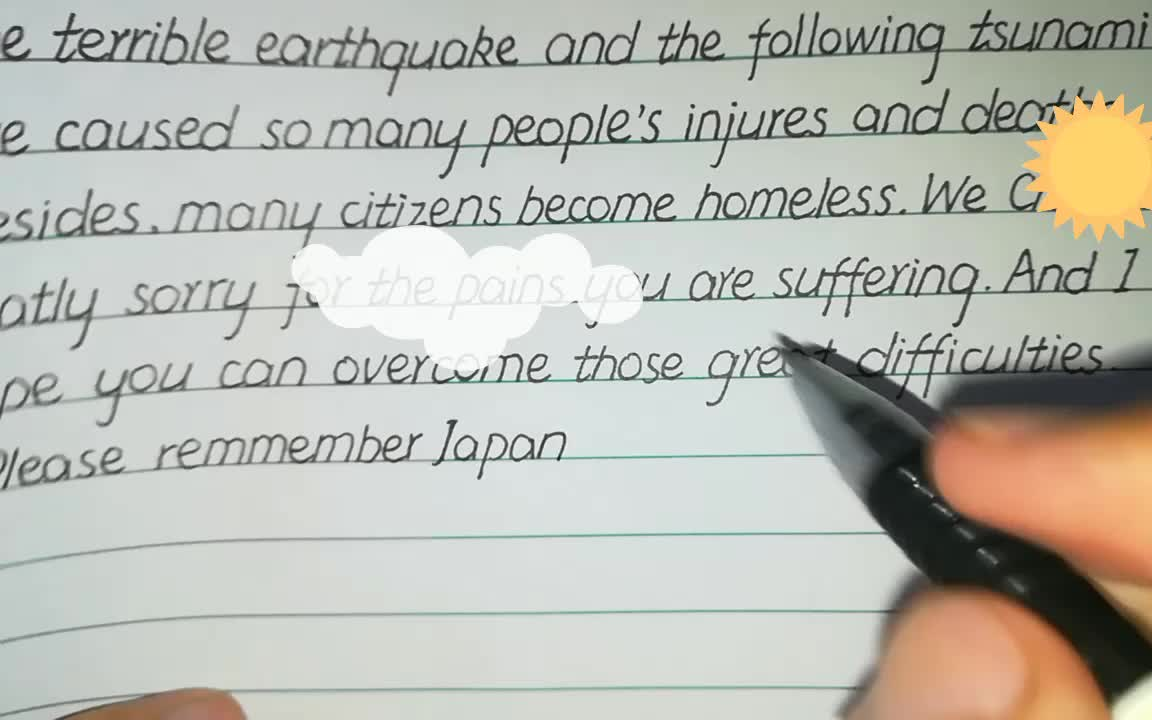 e terrible earthquake and the following tsunami
e caused so many people's injures and deaths
esides. many citizens become homeless. We
atly sorry for the pains you are suffering. And I
pe you can overcome those great difficulties.
Please remmember Japan